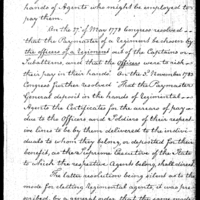 hands of Agents who might be employed to
pay them.
On the 27th of May 1778 Congress resolved
that the Paymaster of a regiment be chosen by
the officers of a regiment out of the Captains or
Subalterns, and that the officers were to risk
their pay in their hands. On the 3d November 1783
Congress further resolved "That the Paymaster
General deposit in the hands of regimental
Agents the Certificates for the arrears of pay
due to the Officers and Soldiers of their respect
ive lines to be by them delivered to the individ
uals to whom they belong, or deposited for their
benefit, as the Supreme Executive of the State
to which the respective Agents belong, shall direct
The latter resolution being silent as to the
mode for electing Regimental agents, it was pre
scribed, by a general order that the same mode